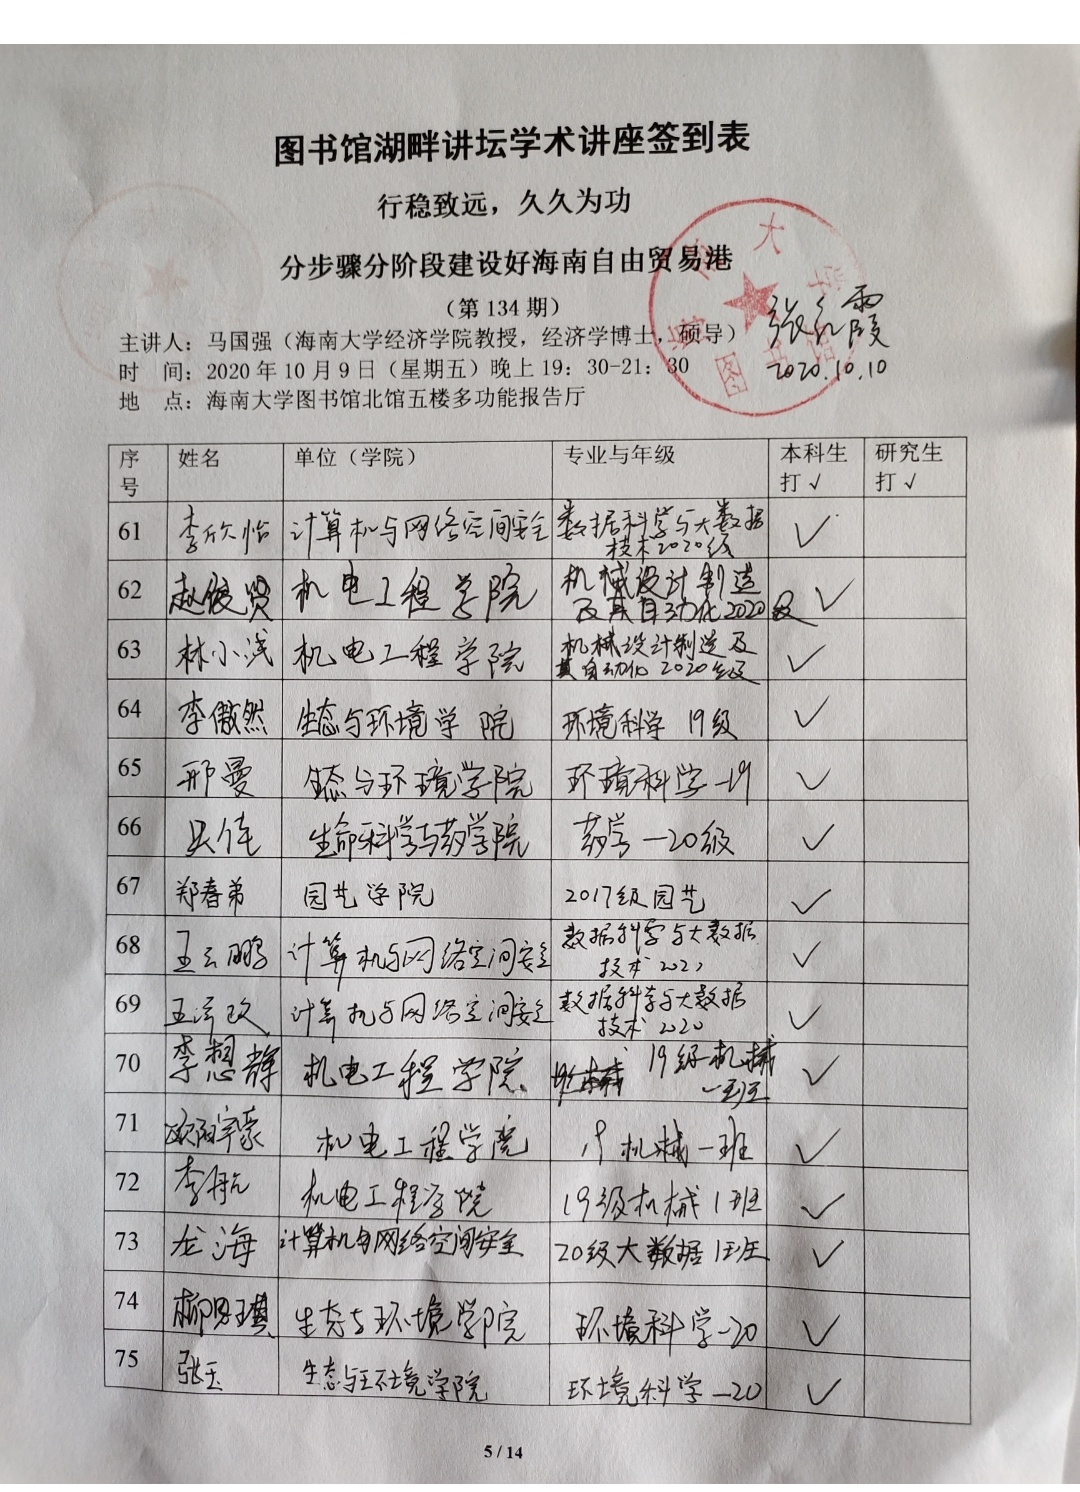 图书馆湖畔讲坛学术讲座签到表
行稳致远，久久为功
分步骤分阶段建设好海南自由贸易港
（第 134 期）
主讲人：马国强（海南大学经济学院教授，经济学博士，硕导）
时 间：2020 年 10 月 9 日（星期五）晚上 19：30-21：30
2020.10.10
地 点：海南大学图书馆北馆五楼多功能报告厅
序号 姓名 单位（学院） 专业与年级 本科生打√ 研究生打√
61 李欣怡 计算机与网络空间安全 数据科学与大数据技术2020级 √
62 赵俊贤 机电工程学院 机械设计制造及其自动化2020级 √
63 林小浅 机电工程学院 机械设计制造及其自动化 2020级 √
64 李傲然 生态与环境学院 环境科学 19级 √
65 邢曼 生态与环境学院 环境科学-19 √
66 生命科学与药学院 药学-20级 √
67 郑春弟 园艺学院 2017级园艺 √
68 王云鹏 计算机与网络空间安全 数据科学与大数据技术 √
69 计算机与网络空间安全 数据科学与大数据技术 2020 √
70 李想静 机电工程学院 19级机械一班 √
71 欧阳宇豪 机电工程学院 19机械一班 √
72 李航 机电工程学院 19级机械1班 √
73 龙海 计算机与网络空间安全 20级大数据1班 √
74 生态与环境学院 环境科学-20 √
75 张玉 生态与环境学院 环境科学-20 √
5 / 14